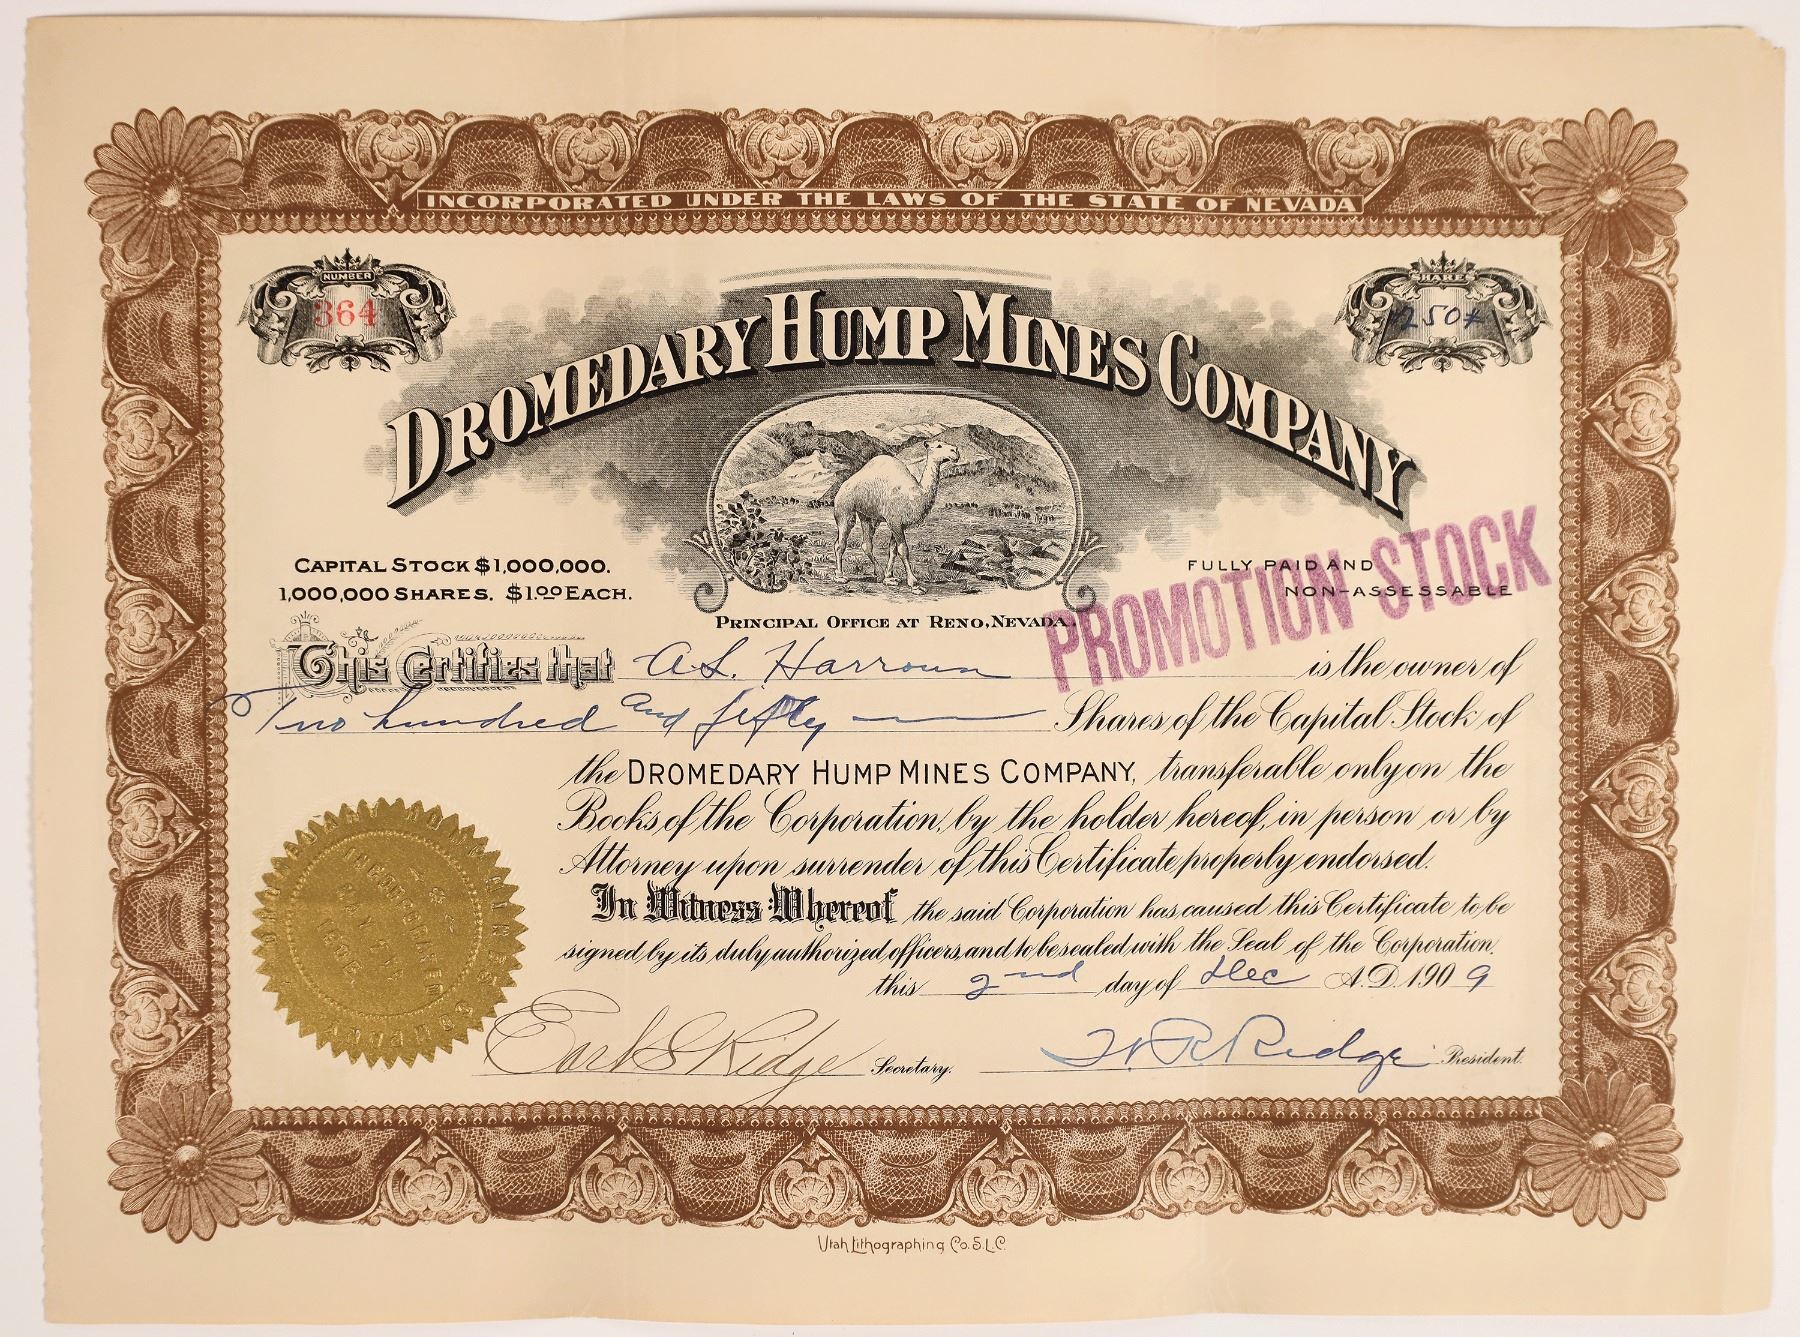 INCORPORATED UNDER THE LAWS OF THE STATE OF NEVADA
NUMBER
364
SHARES
*250*
DROMEDARY HUMP MINES COMPANY
CAPITAL STOCK $1,000,000.
1,000,000 SHARES. $1.00 EACH.
FULLY PAID AND
NON-ASSESSABLE
PRINCIPAL OFFICE AT RENO, NEVADA.
PROMOTION STOCK
This Certifies that A.L. Harroun is the owner of
Two hundred and fifty Shares of the Capital Stock of
the DROMEDARY HUMP MINES COMPANY, transferable only on the
Books of the Corporation, by the holder hereof, in person or by
Attorney upon surrender of this Certificate properly endorsed.
In Witness Whereof the said Corporation has caused this Certificate to be
signed by its duly authorized officers, and to be sealed with the Seal of the Corporation.
this 2nd day of Dec A.D. 1909
INCORPORATED
Earl S Ridge Secretary.
H R Ridge President.
Utah Lithographing Co. S.L.C.